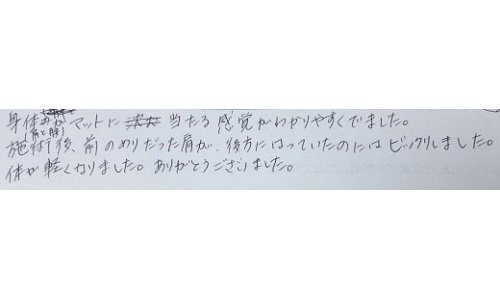 身体がマットに当たる感覚がわかりやすくでました。
(肩と腰)
施術後、前のめりだった肩が、後方にはっていたのにはビックリしました。
体が軽くなりました。ありがとうございました。